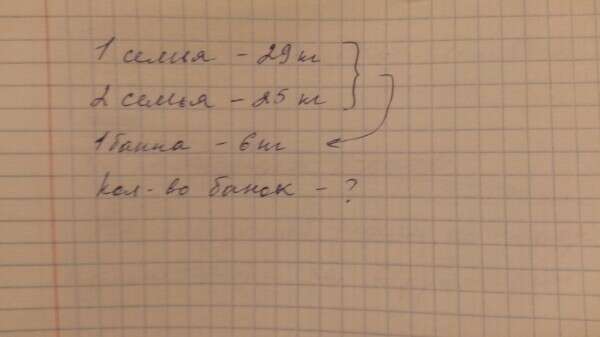 1 семья - 29 кг
2 семья - 25 кг
1 банка - 6 кг
кол-во банок - ?